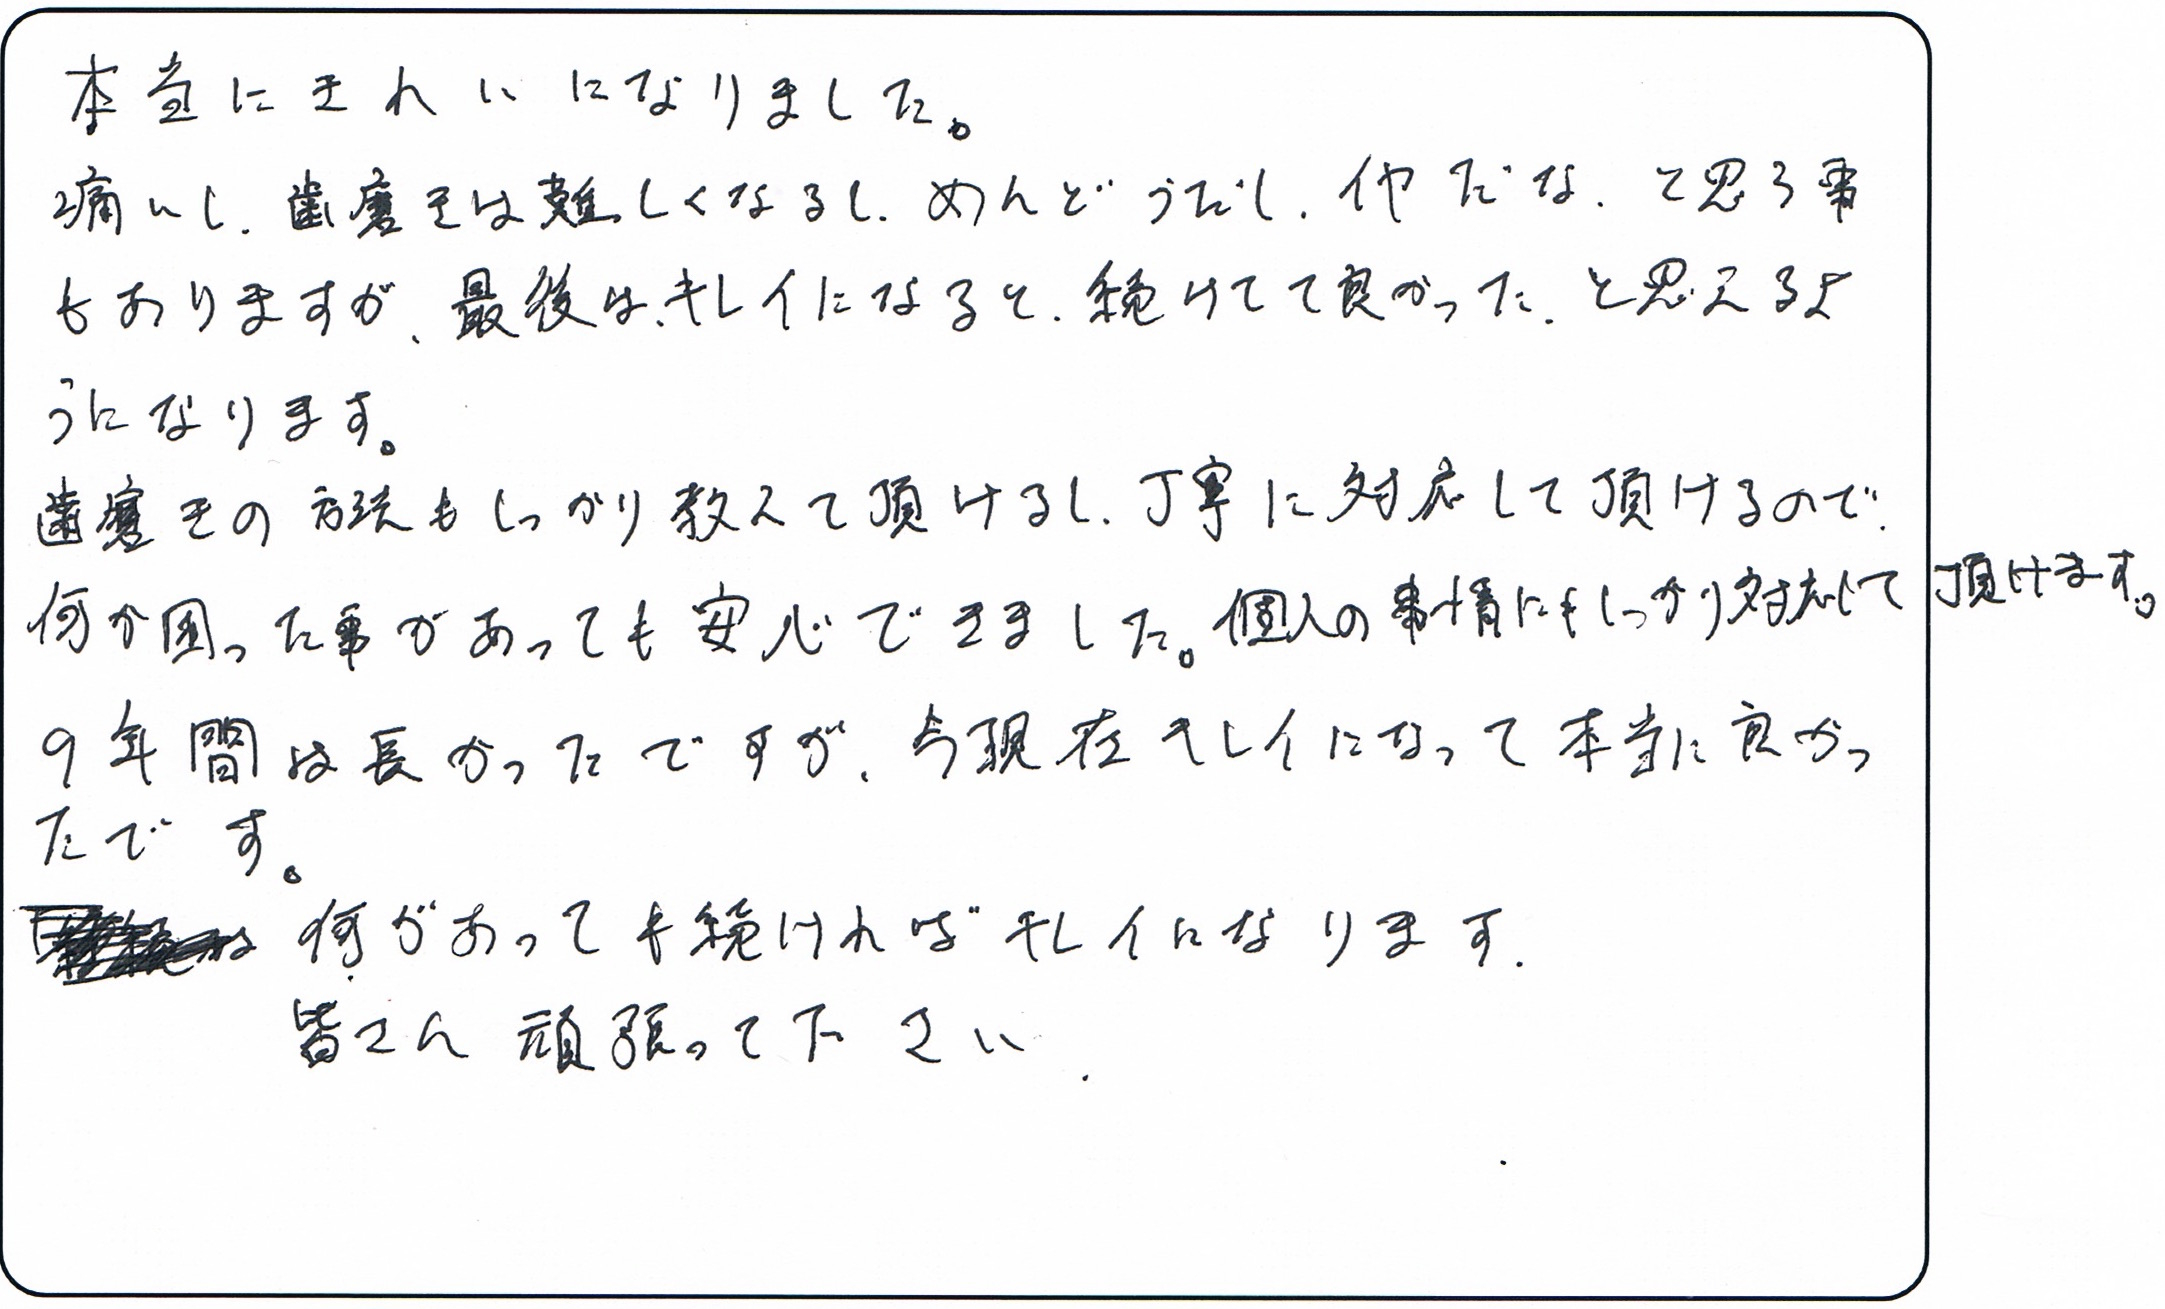 本当にきれいになりました。
痛いし、歯磨きは難しくなるし、めんどうだし、イヤだな、と思う事
もありますが、最後は、キレイになると、続けてて良かった、と思えるよ
うになります。
歯磨きの方法もしっかり教えて頂けるし、丁寧に対応して頂けるので、
何か困った事があっても安心できました。個人の事情にもしっかり対応して頂けます。
9年間は長かったですが、今現在キレイになって本当に良かっ
たです。
何があっても続ければキレイになります.
皆さん頑張って下さい.